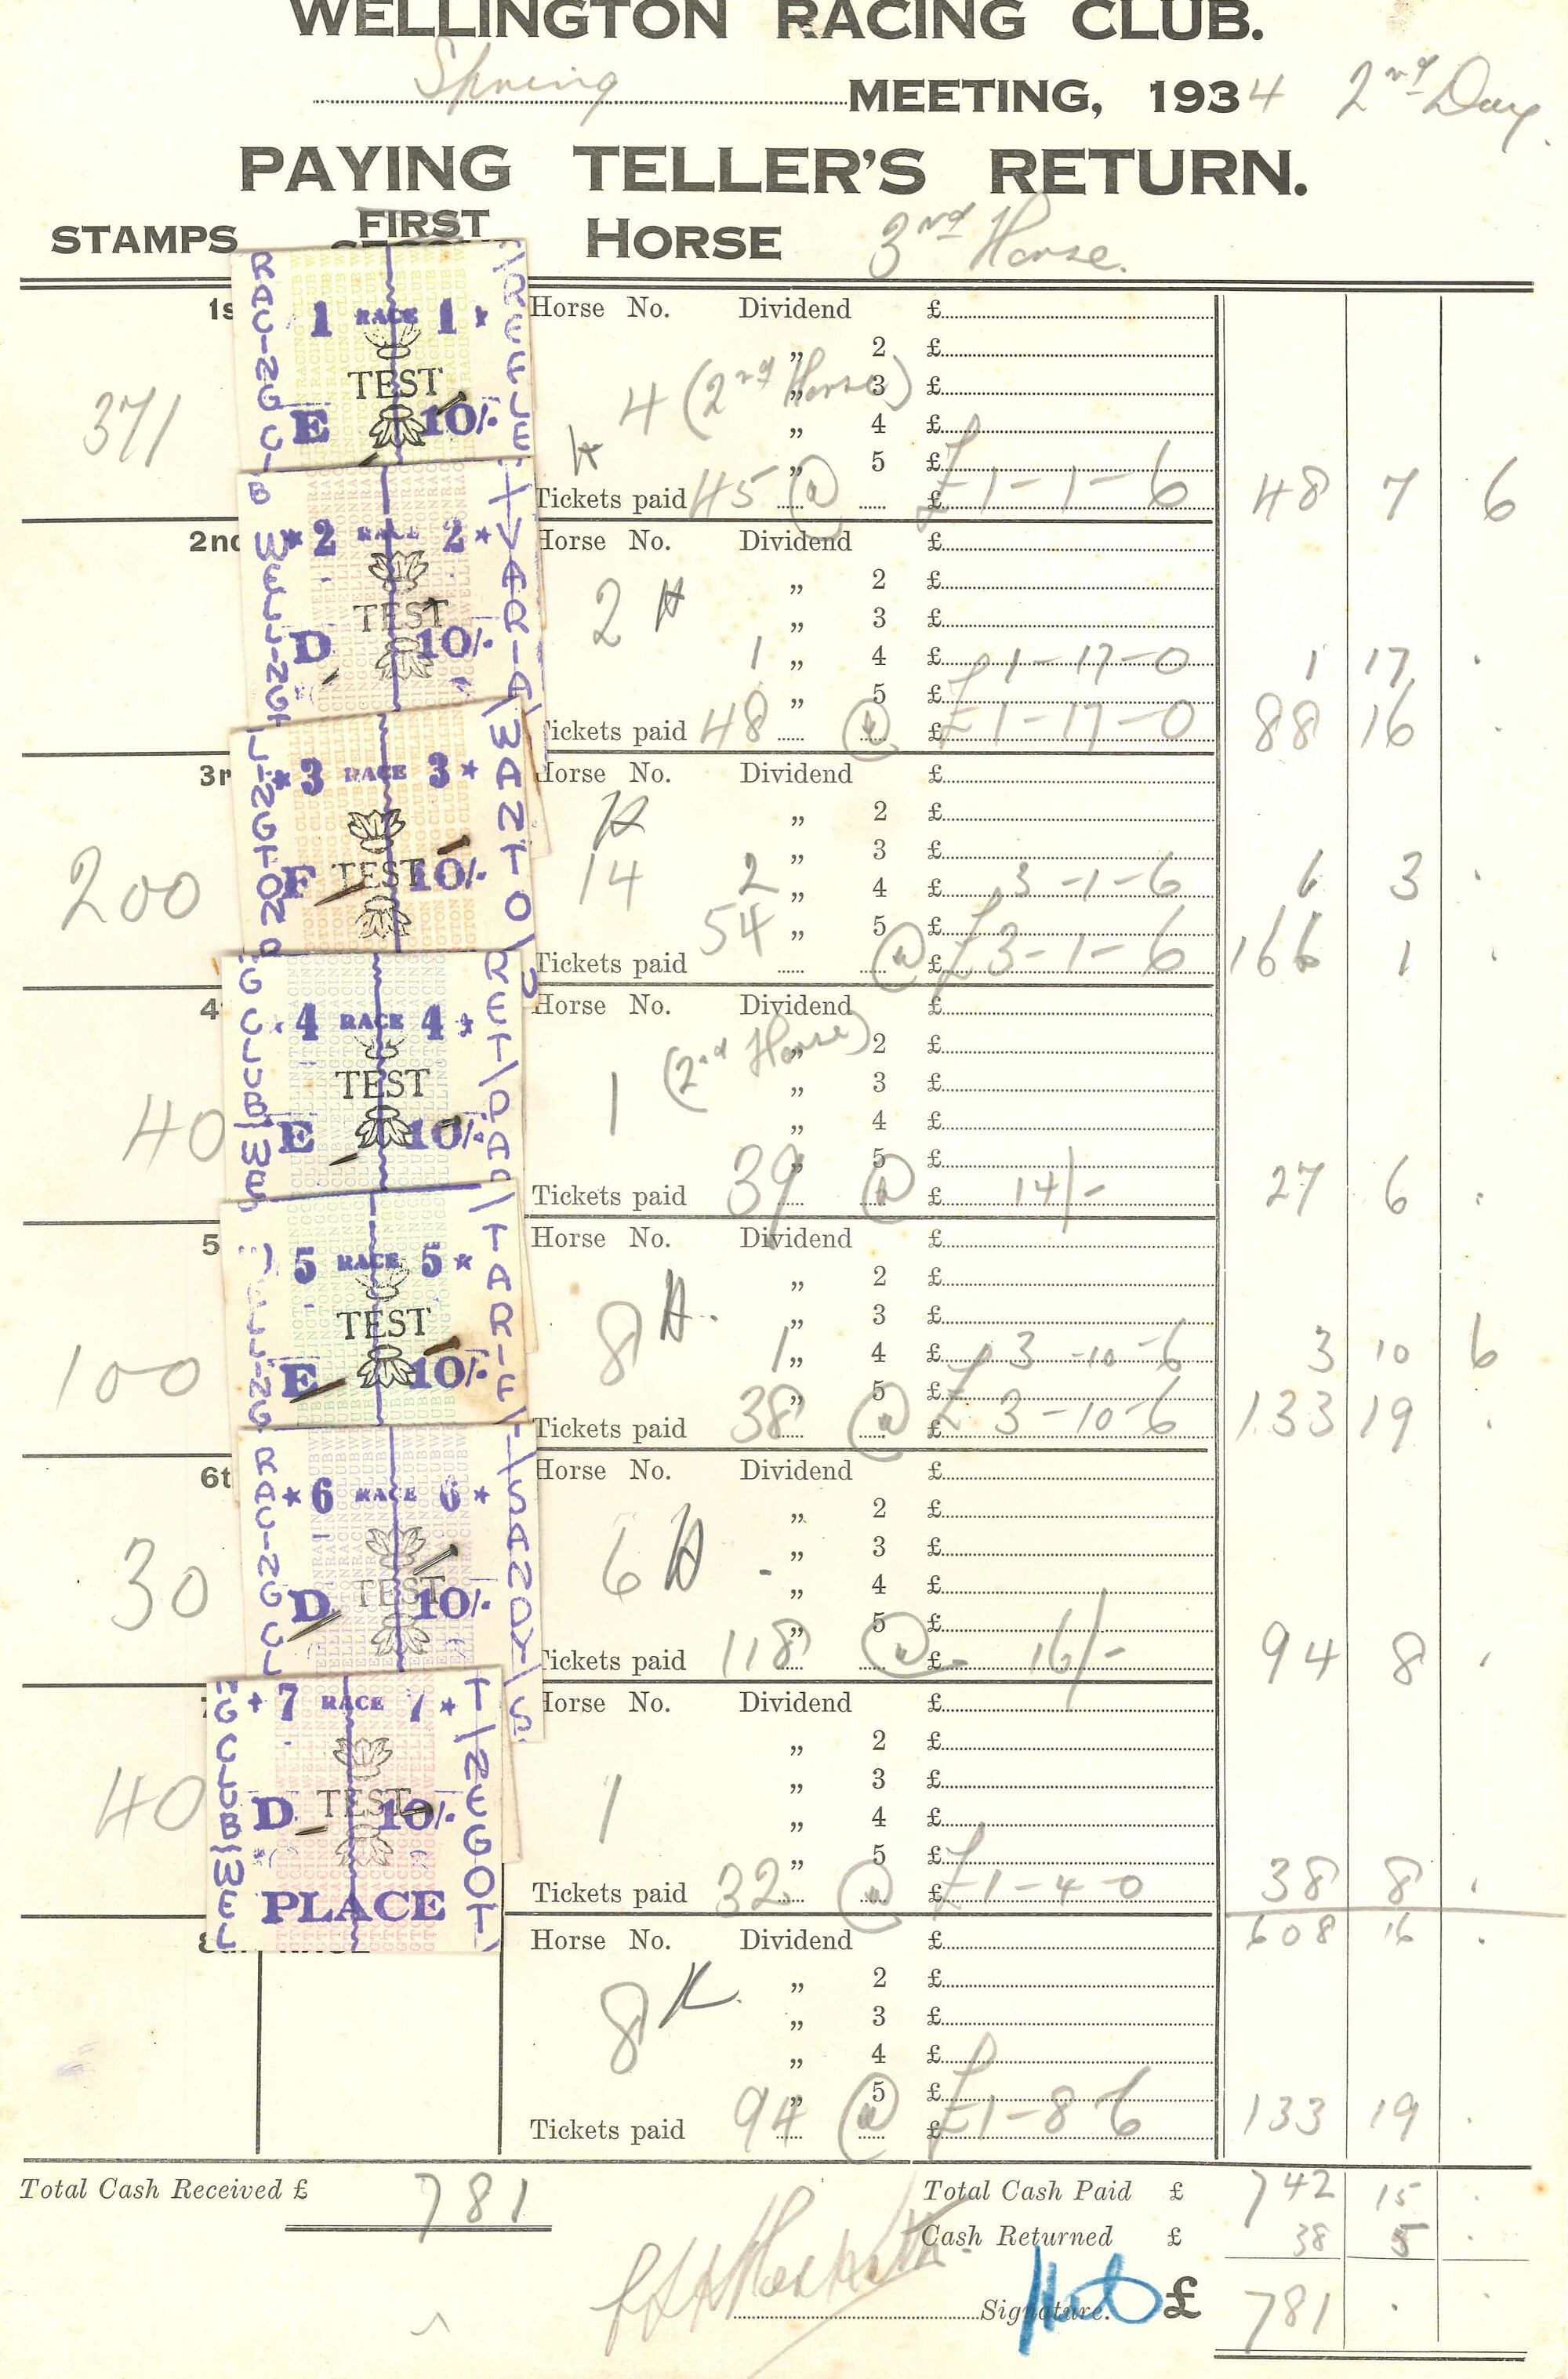 WELLINGTON RACING CLUB.
Spring MEETING, 1934 2nd Day.
PAYING TELLER'S RETURN.
STAMPS FIRST HORSE 3rd Horse.
Horse No. Dividend £
„ 2 £
4 (2nd Horse) „ 3 £
371 „ 4 £
„ 5 £
Tickets paid 45 @ £1-1-6 48 7 6
RACING CLUB WELLINGT
REEFLE
1 RACE 1
TEST
E 10/-
2nd Horse No. Dividend £
„ 2 £
2 „ 3 £
1 „ 4 £ 1-17-0 1 17 .
„ 5 £
Tickets paid 48 @ £1-17-0 88 16 .
2 RACE 2
TEST
D 10/-
VARIA
3r Horse No. Dividend £
„ 2 £
„ 3 £
200 14 2 „ 4 £ 3-1-6 6 3 .
54 „ 5 £
Tickets paid @ £3-1-6 166 1 .
LINGTON
3 RACE 3
TEST
F 10/-
WANTO
4 Horse No. Dividend £
(2nd Horse) „ 2 £
1 „ 3 £
40 „ 4 £
„ 5 £
Tickets paid 39 @ £ 14/- 27 6 .
G CLUB WEL
4 RACE 4
TEST
E 10/-
RET/PA
5 Horse No. Dividend £
„ 2 £
8 „ 3 £
100 1 „ 4 £ 3-10-6 3 10 6
„ 5 £
Tickets paid 38 @ £ 3-10-6 133 19 .
LLING
5 RACE 5
TEST
E 10/-
TARIF
6t Horse No. Dividend £
„ 2 £
6 „ 3 £
30 „ 4 £
„ 5 £
Tickets paid 118 @ £ 16/- 94 8 .
RACING CL
6 RACE 6
TEST
D 10/-
SANDY/S
7 Horse No. Dividend £
„ 2 £
„ 3 £
40 1 „ 4 £
„ 5 £
Tickets paid 32 @ £1-4-0 38 8 .
G CLUB WEL
7 RACE 7
TEST
D 10/-
PLACE
T/NEGOT
608 16 .
Horse No. Dividend £
„ 2 £
8 „ 3 £
„ 4 £
„ 5 £
Tickets paid 94 @ £1-8-6 133 19 .
Total Cash Received £ 781
Total Cash Paid £ 742 15 .
Cash Returned £ 38 5 .
Signature. £ 781 . .